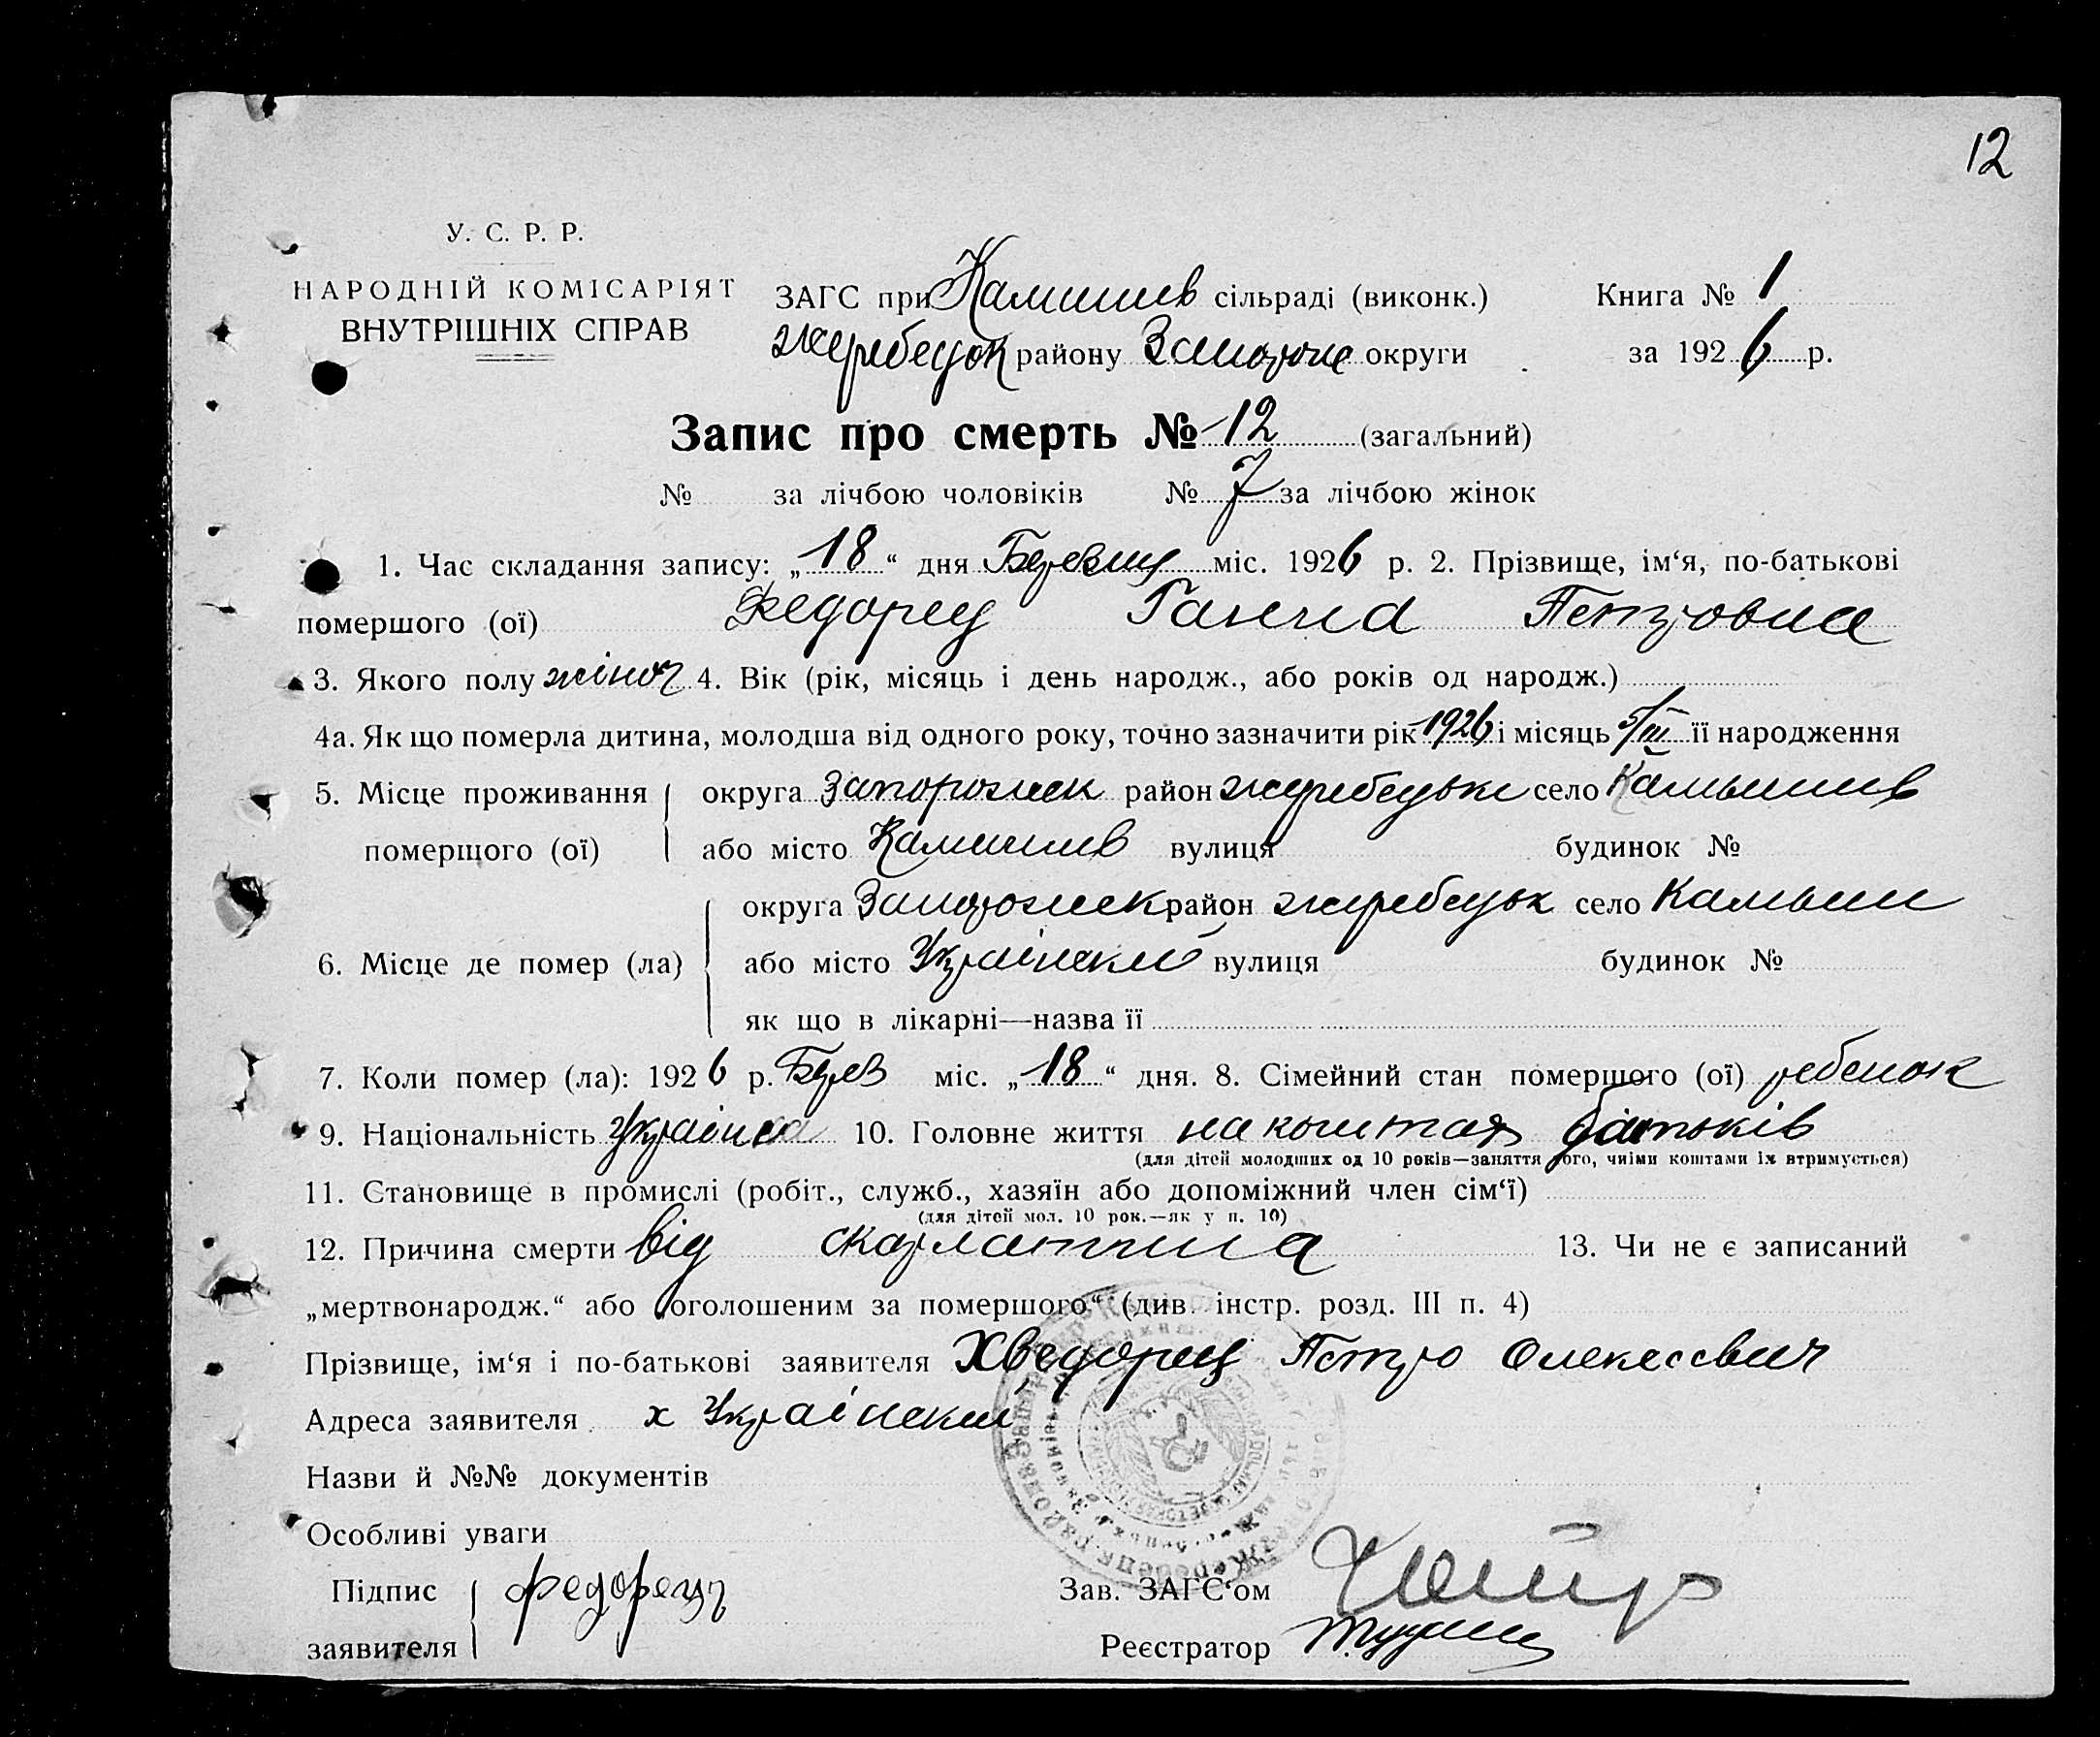 12
У. С. Р. Р.
НАРОДНІЙ КОМІСАРІЯТ
ВНУТРІШНІХ СПРАВ
ЗАГС при Камишев сільраді (виконк.) Книга № 1
Жеребецок району Запорож округи за 1926 р.
Запис про смерть № 12 (загальний)
№ за лічбою чоловіків № 7 за лічбою жінок
1. Час складання запису: „18“ дня Березня міс. 1926 р. 2. Прізвище, ім‘я, по-батькові
помершого (ої) Федорец Ганна Петровна
3. Якого полу жіноч 4. Вік (рік, місяць і день народж., або років од народж.)
4а. Як що померла дитина, молодша від одного року, точно зазначити рік 1926 і місяць 5/III її народження
5. Місце проживання округа Запорожск район жеребецьк село Камышев
померщого (ої) або місто Камишев вулиця будинок №
округа Запорожск район жеребецьк село Камыш
6. Місце де помер (ла) або місто Українский вулиця будинок №
як що в лікарні—назва її
7. Коли помер (ла): 1926 р. Берез міс. „18“ дня. 8. Сімейний стан померщого (ої) ребенок
9. Національність Українка 10. Головне життя на коштах батьків
(для дітей молодших од 10 років—заняття того, чиїми коштами їх втримується)
11. Становище в промислі (робіт., служб., хазяїн або допоміжний член сім‘ї)
(для дітей мол. 10 рок.—як у п. 10)
12. Причина смерти від скарлатина 13. Чи не є записаний
„мертвонародж.“ або „оголошеним за помершого“ (див. інстр. розд. III п. 4)
Прізвище, ім‘я і по-батькові заявителя Хведорец Петро Олексеевич
Адреса заявителя х Українский
Назви й №№ документів
Особливі уваги
Підпис заявителя федорец Зав. ЗАГС‘ом
Реєстратор